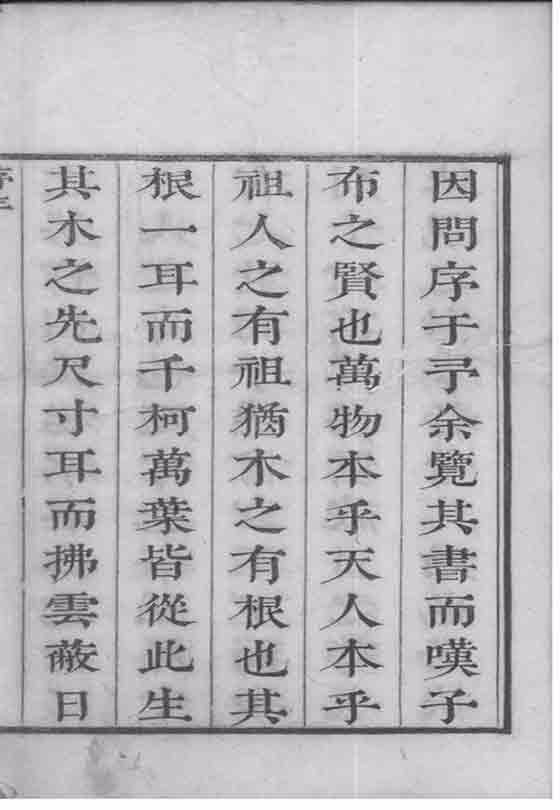 因問序于予余覽其書而嘆子
布之賢也萬物本乎天人本乎
祖人之有祖猶木之有根也其
根一耳而千柯萬葉皆從此生
其木之先尺寸耳而拂雲蔽日